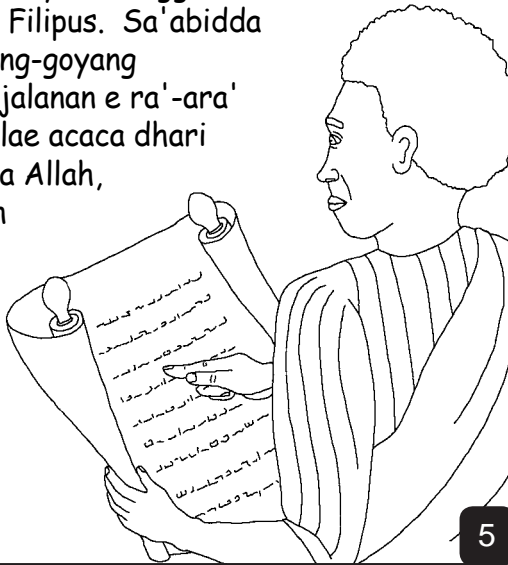 Filipus. Sa'abidda
ng-goyang
jalanan e ra'-ara'
lae acaca dhari
a Allah,
5